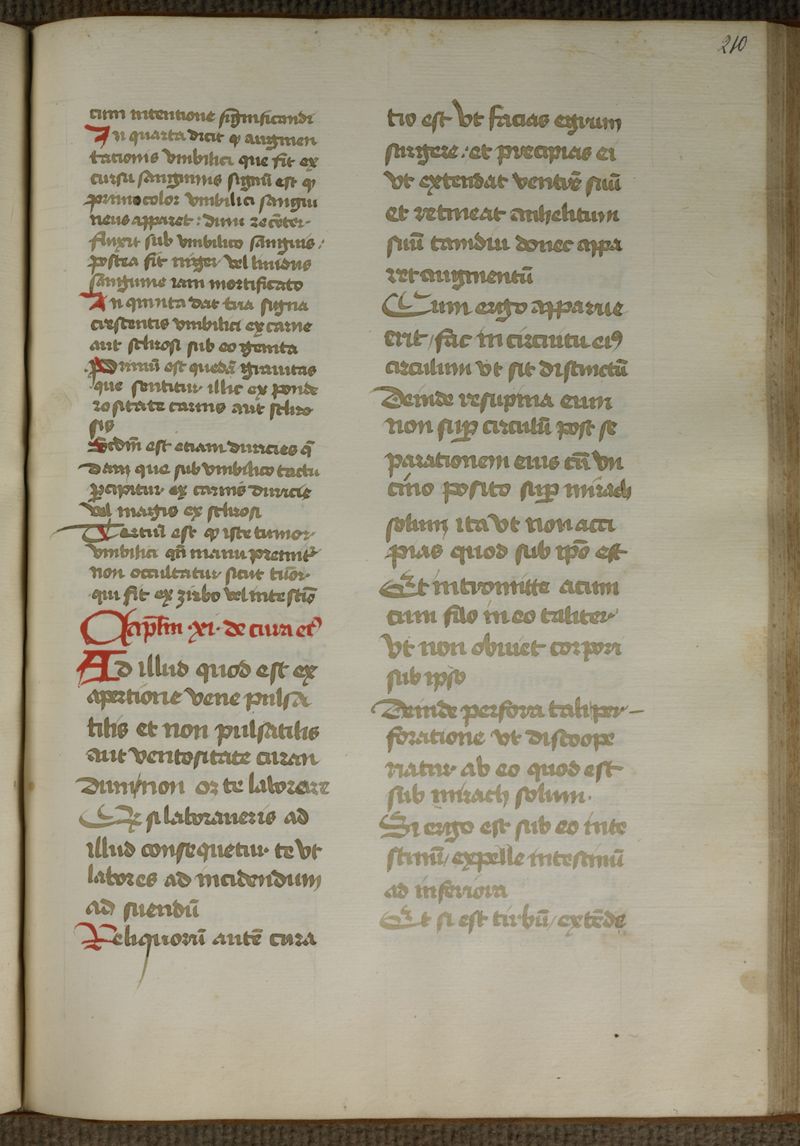 210
cum intentione significandi
In quarta dicit ꝙ augmen
tationis vmbilici que fit ex
cursu sanguinis signū est ꝙ
primo color vmbilici sangui
neus apparet: dum
fluxit sub vmbilico sanguis/
postea fit niger vel liuidus
sanguine iam mortificato
In quinta dat tria signa
crescentis vmbilici ex carne
aut sclirosi sub eo genita
Primū est quedā grauitas
que sentitur illic ex ponde
rositate carnis aut scliro
sis
Scdm̄ est etiam duricies q̄
dam que sub vmbilico tactu
ꝑcipitur ex carnis duricie
vel magis ex sclirosi
Tertiū est ꝙ iste tumor
vmbilici qn̄ manu premit᷑
non occultatur sicut tūor
qui fit ex zirbo vel intestīo
Capl̄m .xi. de cura eiꝰ
Ad illud quod est ex
apertione vene pulsa
tilis et non pulsatilis
aut ventositate curan
dum/non oꝫ te laborare
Et si laboraueris ad
illud consequetur te vt
labores ad incidendum
ad suendū
Reliquorū autē cura
tio est vt facias egrum
surgere: et precipias ei
vt extendat ventrē suū
et retineat anhelitum
suū tamdiu donec appa
ret augmentū
Cum ergo apparue
erit/fac in circuitu eiꝰ
circulum vt sit distinctū
Deinde resupina eum
non suꝑ circulū post se
parationem eius cū vn
cino posito suꝑ mirach
solum ita vt non acci
pias quod sub ip̄o est
Et intromitte acum
cum filo in eo taliter
vt non obuiet corpori
sub ipso
Deinde perfora tali per-
foratione vt discoope
riatur ab eo quod est
sub mirach solum.
Si ergo est sub eo inte
stinū/expelle intestinū
ad inferiora
Et si est tirbū/extēde